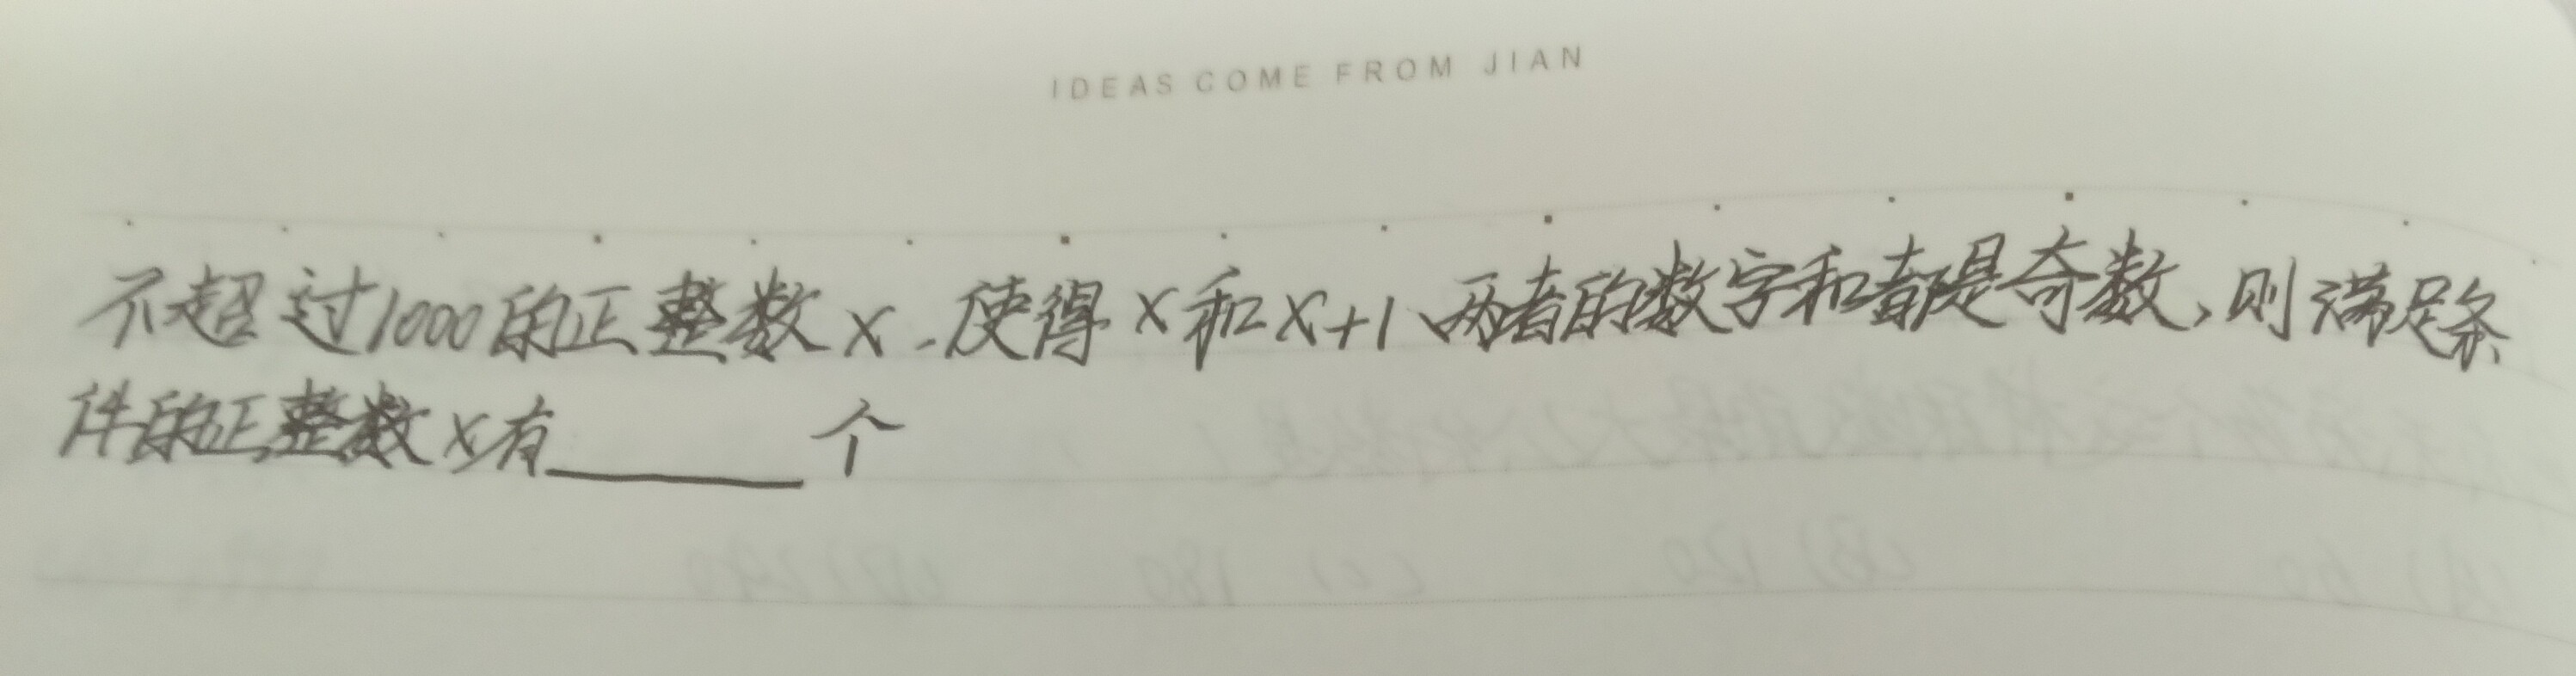 IDEAS COME FROM JIAN
不超过1000的正整数x,使得x和x+1、两者的数字和都是奇数,则满足条
件的正整数x有______个